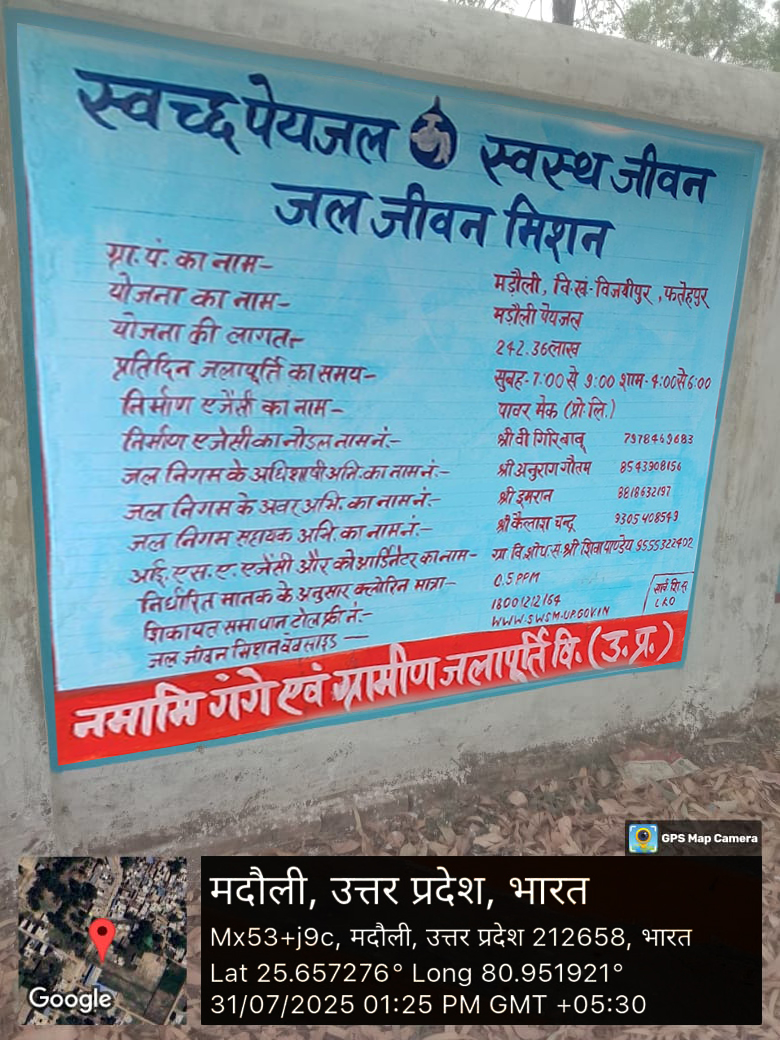 स्वच्छ पेयजल स्वस्थ जीवन
जल जीवन मिशन
ग्रा.पं. का नाम- मड़ौली, वि.खं-विजयीपुर ,फतेहपुर
योजना का नाम- मडौली पेयजल
योजना की लागत- 242.36लाख
प्रतिदिन जलापूर्ति का समय- सुबह-7:00 से 9:00 शाम-4:00से6:00
निर्माण एजेंसी का नाम- पावर मेक (प्रो.लि.)
निर्माण एजेंसी का नोडल नाम नं.- श्री वी गिरि बाबू 7978469683
जल निगम के अधिशाषी अभि. का नाम नं.- श्री अनुराग गौतम 8543908156
जल निगम के अवर अभि. का नाम नं.- श्री इमरान 8818632197
जल निगम सहायक अभि. का नाम नं.- श्री कैलाश चन्द्र 9305408549
आई.एस.ए. एजेंसी और कोआर्डिनेटर का नाम- ग्रा.वि.शोध.स. श्री शिवा पाण्डेय 9555322402
निर्धारित मानक के अनुसार क्लोरिन मात्रा- 0.5 PPM
शिकायत समाधान टोल फ्री नं.- 18001212164
जल जीवन मिशन वेबसाइड — WWW.SWSM-UP.GOV.IN
नमामि गंगे एवं ग्रामीण जलापूर्ति वि. (उ.प्र.)
GPS Map Camera
मदौली, उत्तर प्रदेश, भारत
Mx53+j9c, मदौली, उत्तर प्रदेश 212658, भारत
Lat 25.657276° Long 80.951921°
31/07/2025 01:25 PM GMT +05:30
Google